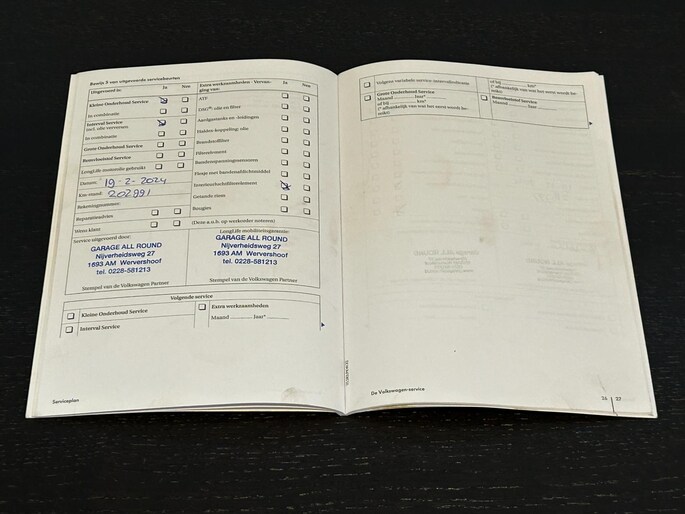 Bewijs 5 van uitgevoerde servicebeurten
Uitgevoerd is: Ja Nee
Kleine Onderhoud Service
In combinatie
Interval Service
incl. olie verversen
In combinatie
Grote Onderhoud Service
Remvloeistof Service
LongLife motorolie gebruikt
Datum: 19-2-2024
Km-stand: 202991
Rekeningnummer:
Reparatieadvies:
Wens klant:
Extra werkzaamheden - Vervanging van: Ja Nee
ATF
DSG®: olie en filter
Aardgastanks en -leidingen
Haldex-koppeling: olie
Brandstoffilter
Filterelement
Bandenspanningssensoren
Flesje met bandenafdichtmiddel
Interieurluchtfilterelement
Getande riem
Bougies
(Deze a.u.b. op werkorder noteren)
Service uitgevoerd door:
GARAGE ALL ROUND
Nijverheidsweg 27
1693 AM Wervershoof
tel. 0228-581213
Stempel van de Volkswagen Partner
LongLife mobiliteitsgarantie:
GARAGE ALL ROUND
Nijverheidsweg 27
1693 AM Wervershoof
tel. 0228-581213
Stempel van de Volkswagen Partner
Volgende service
Kleine Onderhoud Service
Interval Service
Extra werkzaamheden
Maand Jaar*
Serviceplan
Volgens variabele service-intervalindicatie
Grote Onderhoud Service
Maand Jaar*
of bij km*
(* afhankelijk van wat het eerst wordt bereikt)
of bij km*
(* afhankelijk van wat het eerst wordt bereikt)
Remvloeistof Service
Maand Jaar
De Volkswagen-service
26 27